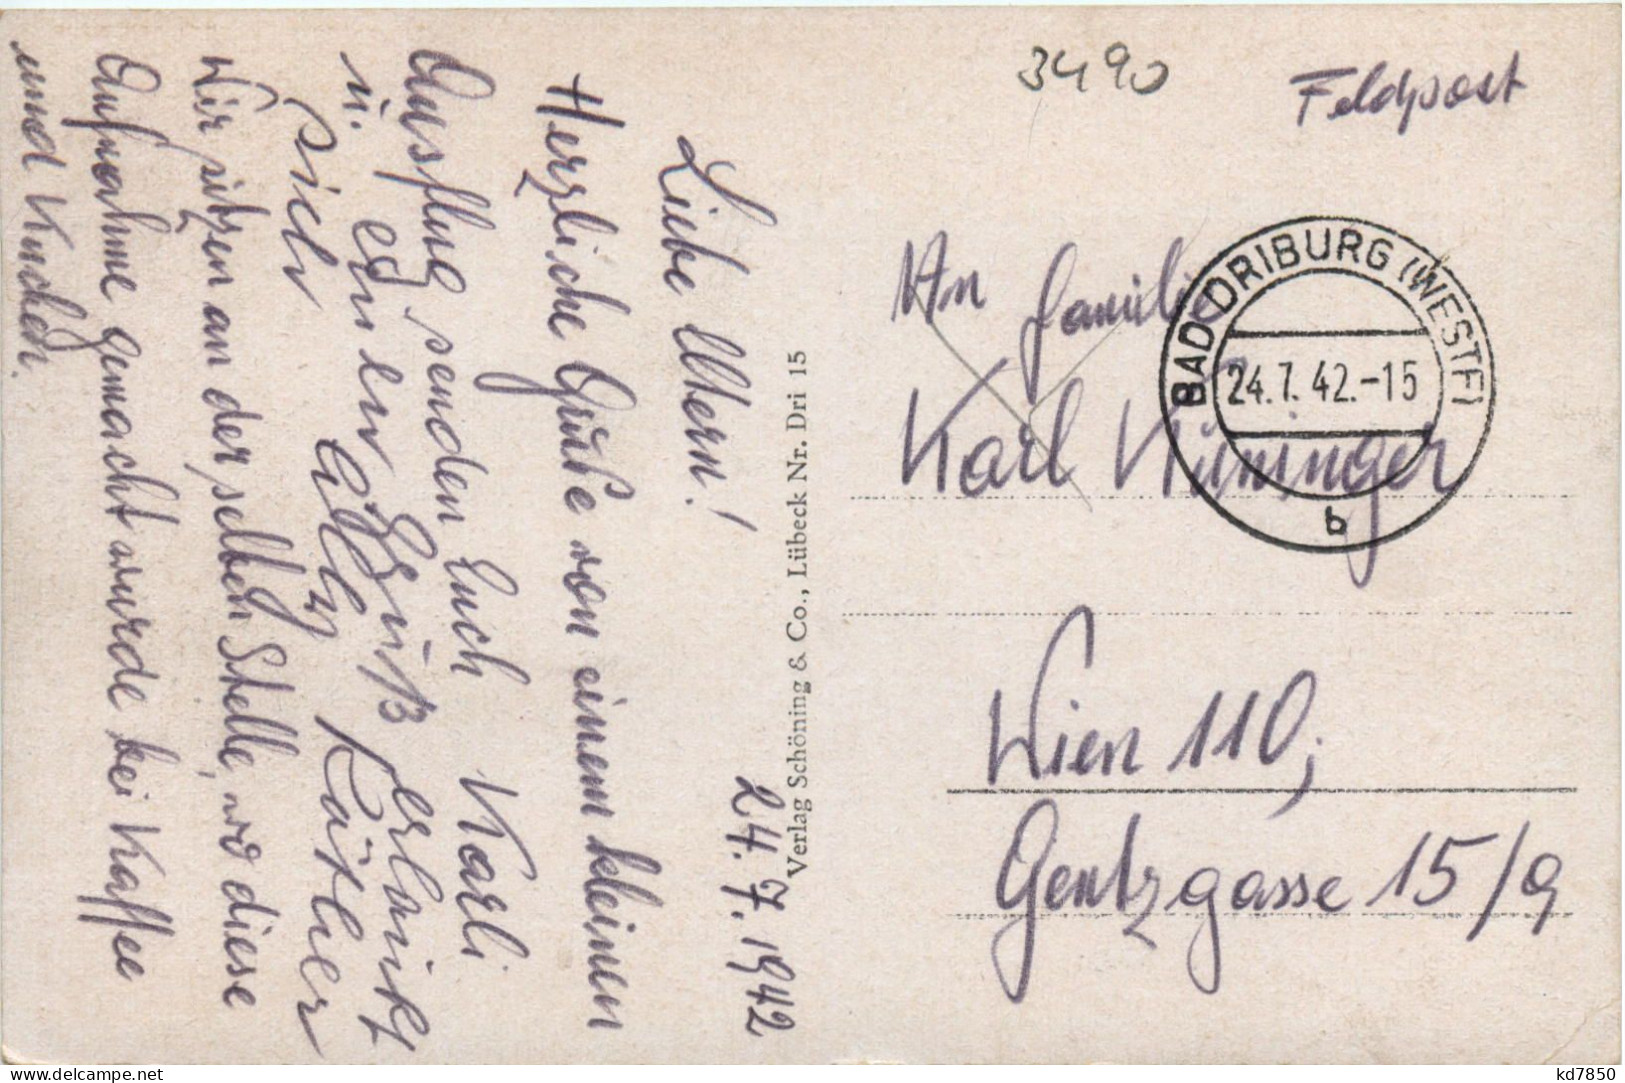 24. 7. 1942
Liebe Eltern!
Herzliche Grüße von einem kleinen
Ausflug senden Euch Karli
u.
Gruß erlaubt
sich Elly
Wir sitzen an der selben Stelle, wo diese
Aufnahme gemacht wurde bei Kaffee
und Kuchen.
Verlag Schöning & Co., Lübeck Nr. Dri 15
3490
Feldpost
BAD DRIBURG (WESTF)
24.7.42.-15
b
An Familie
Karl
Wien 110,
Gentzgasse 15/9
kd7850